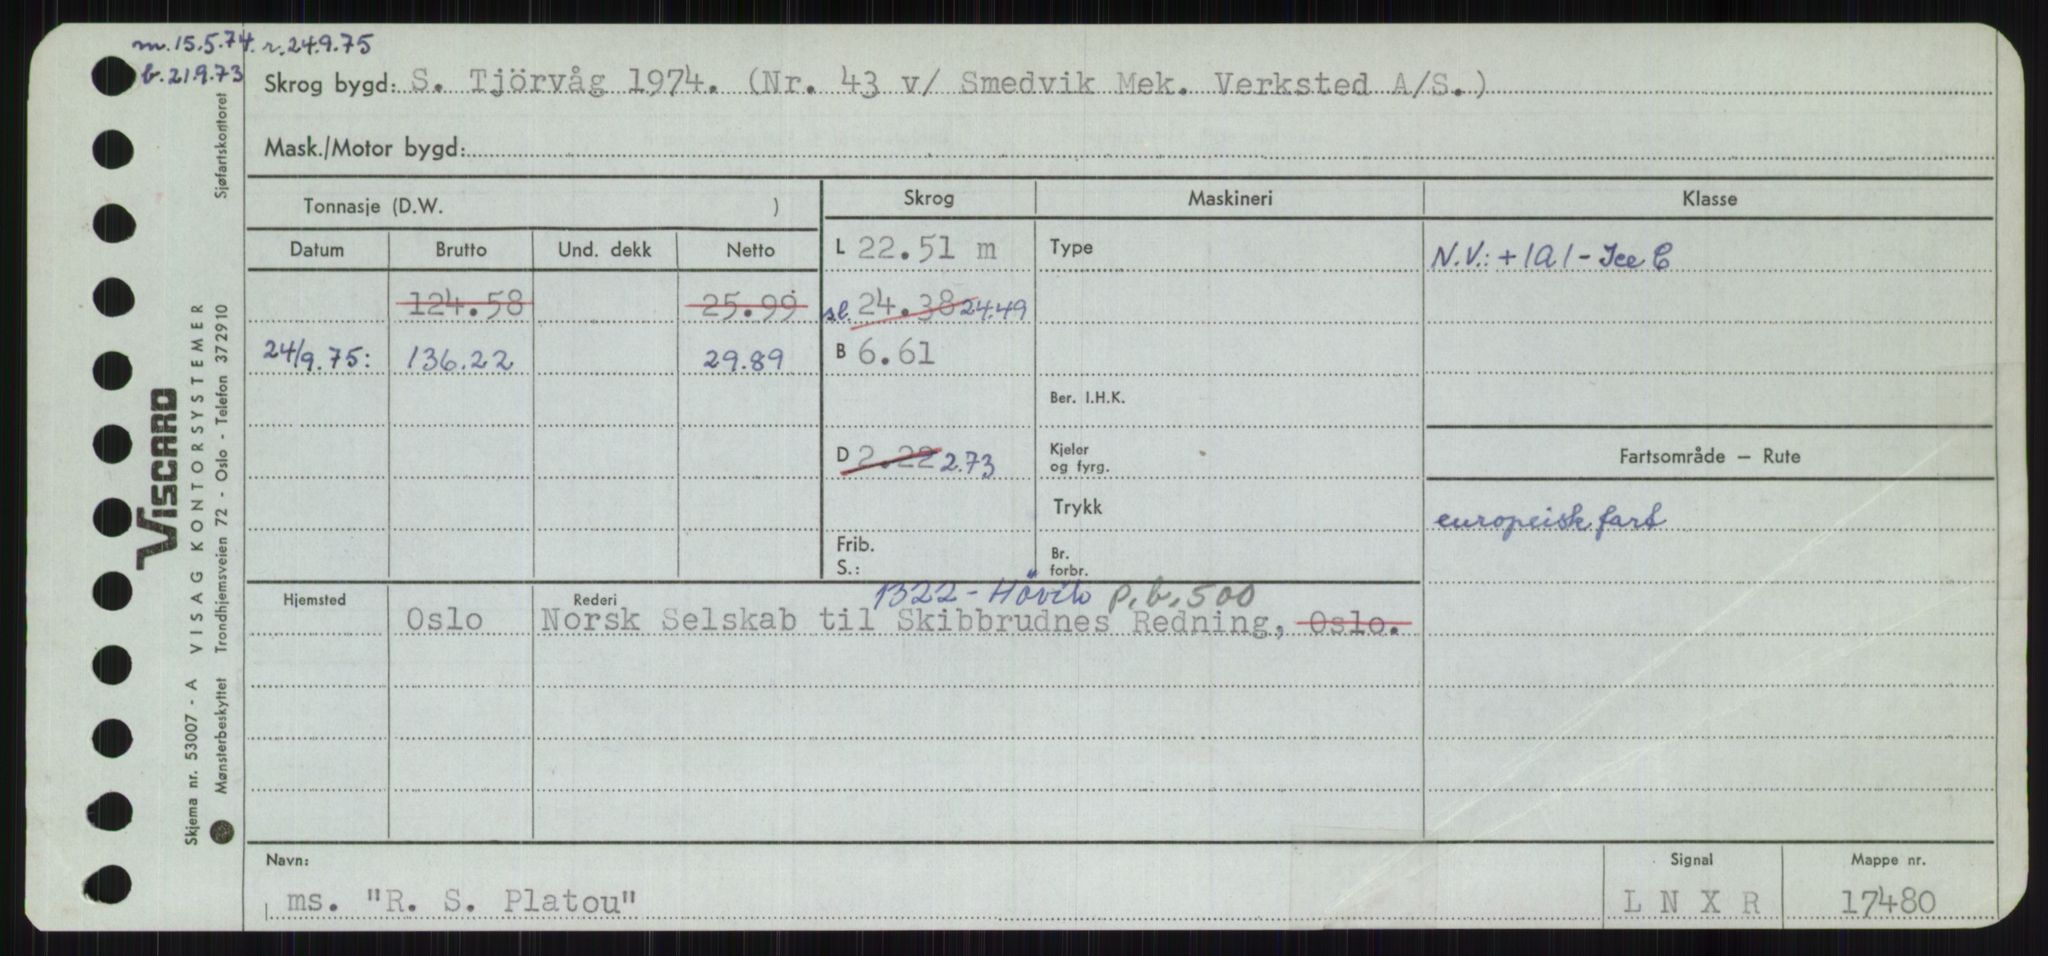 m. 15.5.74. r. 24.9.75
b. 21.9.73
Skrog bygd: S. Tjörvåg 1974. (Nr. 43 v/ Smedvik Mek. Verksted A/S.)
Mask./Motor bygd:
Tonnasje (D.W. )
Skrog Maskineri Klasse
Datum Brutto Und. dekk Netto
L 22.51 m Type N.V.: + 1A1 - Ice C
124.58 25.99 sl. 24.38 24.49
24/9.75: 136.22 29.89 B 6.61
Ber. I.H.K.
D 2.22 2.73 Kjeler og fyrg. Fartsområde – Rute
Trykk europeisk fart
Frib. S.: Br. forbr.
1322 - Hövik p.b. 500
Hjemsted Rederi
Oslo Norsk Selskab til Skibbrudnes Redning, Oslo.
Navn: Signal Mappe nr.
ms. "R. S. Platou" L N X R 17480
Sjøfartskontoret
VISCARD
VISAG KONTORSYSTEMER
Trondhjemsveien 72 - Oslo - Telefon 372910
Skjema nr. 53007 - A
Mønsterbeskyttet